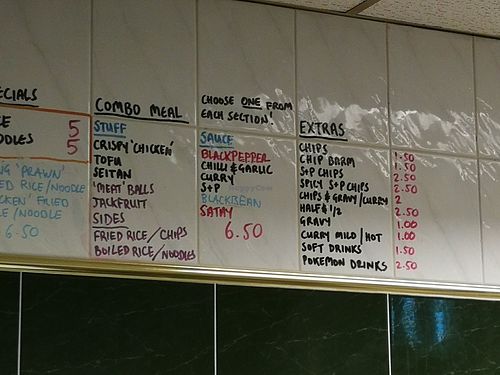 ECIALS
5
ODLES 5
'PRAWN'
ED RICE/NOODLE
CKEN' FRIED
E/NOODLE
6.50
COMBO MEAL
STUFF
CRISPY 'CHICKEN'
TOFU
SEITAN
'MEAT' BALLS
JACKFRUIT
SIDES
FRIED RICE/CHIPS
BOILED RICE/NOODLES
CHOOSE ONE FROM
EACH SECTION!
SAUCE
BLACKPEPPER
CHILLI & GARLIC
CURRY
S+P
BLACKBEAN
SATAY
6.50
EXTRAS
CHIPS 1.50
CHIP BARM 1.50
S+P CHIPS 2.50
SPICY S+P CHIPS 2.50
CHIPS & GRAVY/CURRY 2
HALF & 1/2 2.50
GRAVY 1.00
CURRY MILD/HOT 1.00
SOFT DRINKS 1.50
POKEMON DRINKS 2.50